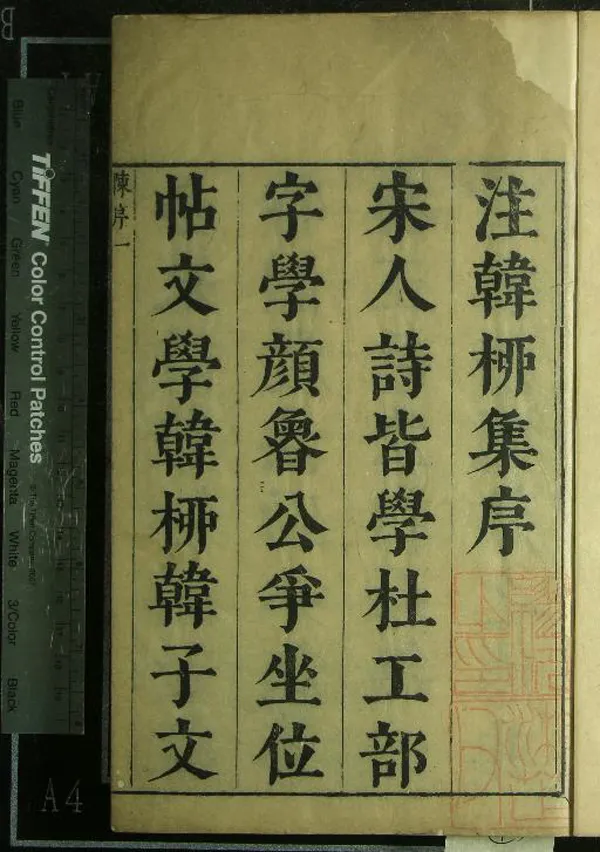 注韓柳集序
宋人詩皆學杜工部
字學顔魯公爭坐位
帖文學韓柳韓子文
陳序一
TIFFEN Color Control Patches
Blue
Cyan
Green
Yellow
Red
Magenta
White
3/Color
Black
A4